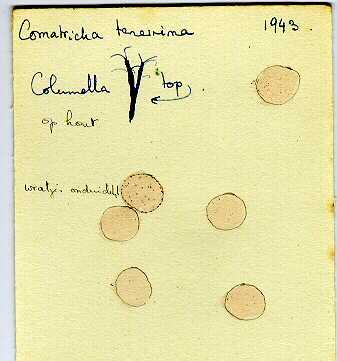 Comatricha tenerrima 1943.
Columella top.
op hout
wratjes